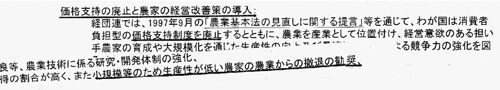 価格支持の廃止と農家の経営改善策の導入:
経団連では、1997年9月の「農業基本法の見直しに関する提言」等を通じて、わが国は消費者
負担型の価格支持制度を廃止するとともに、農業を産業として位置付け、経営意欲のある担い
手農家の育成や大規模化を通じた生産性の向上
よる競争力の強化を図
良等、農業技術に係る研究・開発体制の強化、
得の割合が高く、また小規模等のため生産性が低い農家の農業からの撤退の勧奨、